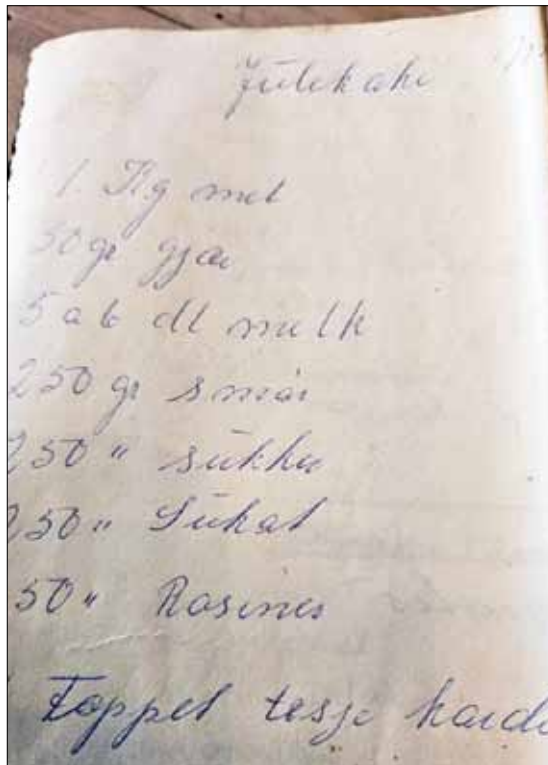 Julekake
1. Kg mel
50 gr gjær
5 a 6 dl melk
250 gr smør
250 " sukker
250 " Sukat
50 " Rosiner
Toppet tesje